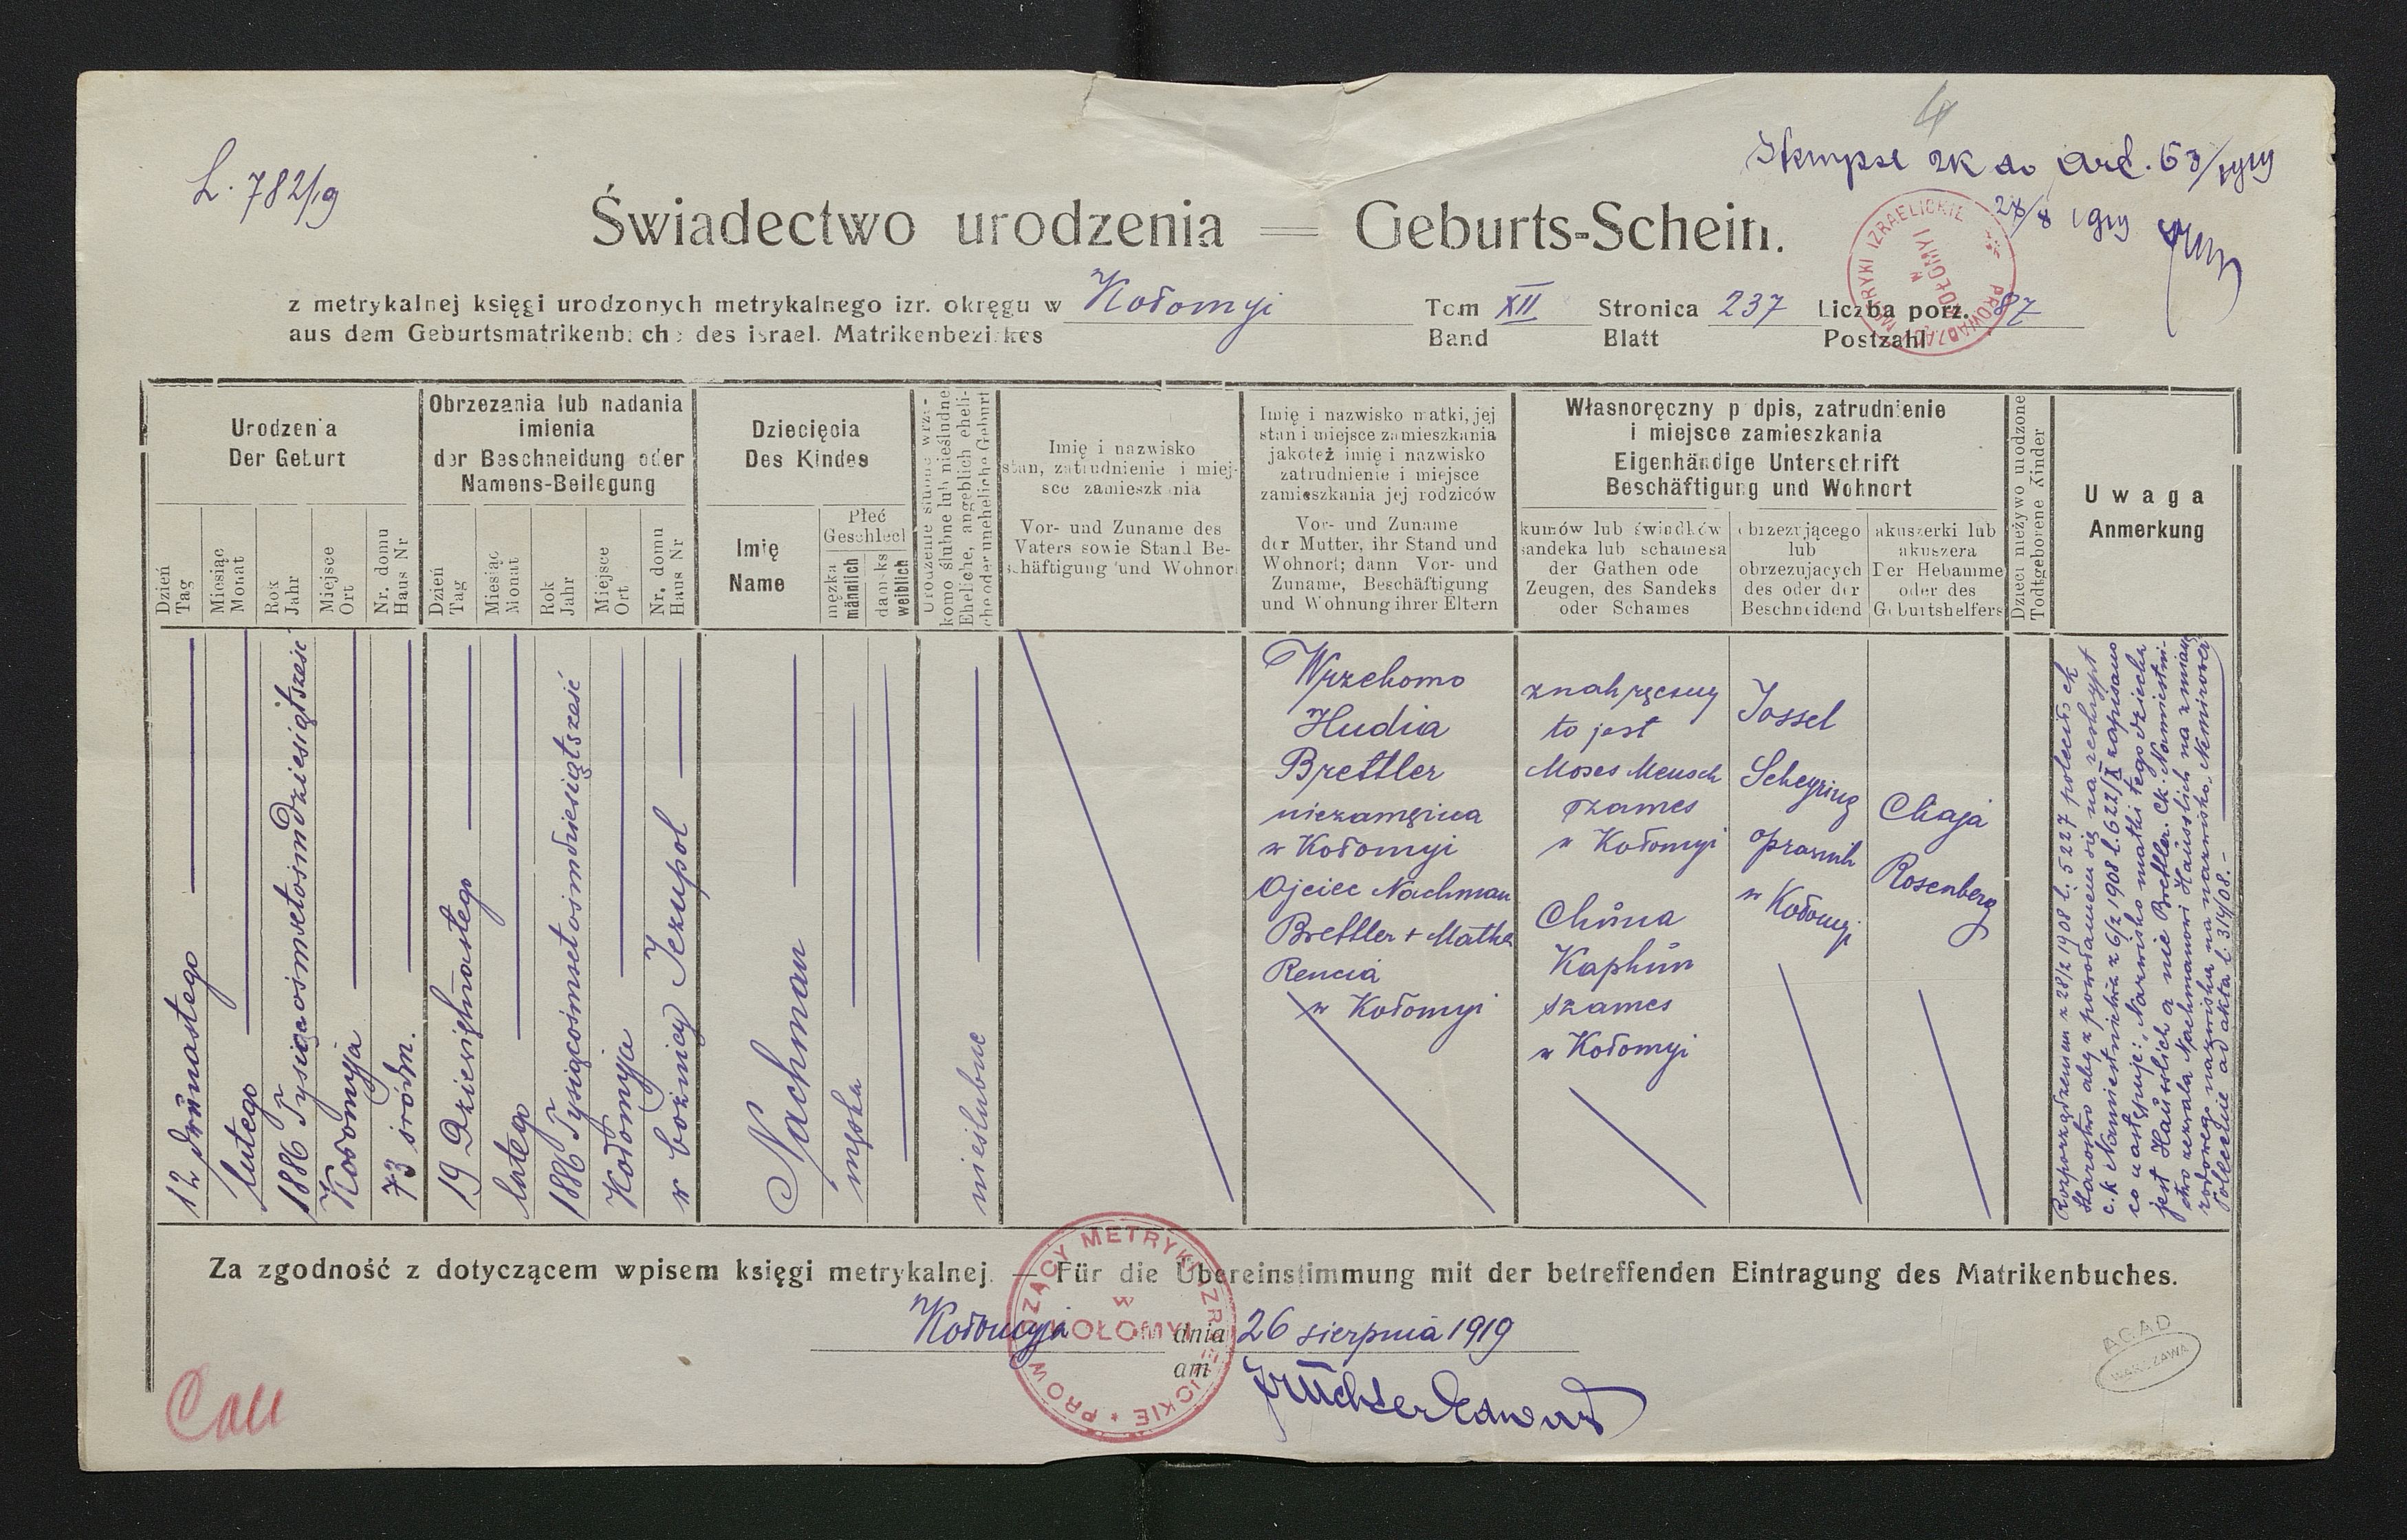 4
L. 782/19
do Ard. 63/1919
Świadectwo urodzenia = Geburts-Schein.
28/8 1919
PROWADZĄCY METRYKI IZRAELICKIE
W KOŁOMYI
z metrykalnej księgi urodzonych metrykalnego izr. okręgu w Kołomyi
Tom XII Stronica 237 Liczba porz. 87
aus dem Geburtsmatrikenbuche des israel. Matrikenbezirkes
Band Blatt Postzahl
Urodzenia
Der Geburt
Dzień
Tag
Miesiąc
Monat
Rok
Jahr
Miejsce
Ort
Nr. domu
Haus Nr
Obrzezania lub nadania
imienia
der Beschneidung oder
Namens-Beilegung
Dzień
Tag
Miesiąc
Monat
Rok
Jahr
Miejsce
Ort
Nr. domu
Haus Nr
Dziecięcia
Des Kindes
Imię
Name
Płeć
Geschlecht
męzka
männlich
damska
weiblich
Urodzenie ślubne wrze-
komo ślubne lub nieślubne
Eheliche, angeblich eheli-
che oder uneheliche Geburt
Imię i nazwisko
stan, zatrudnienie i miej-
sce zamieszkania
Vor- und Zuname des
Vaters sowie Stand Be-
schäftigung und Wohnort
Imię i nazwisko matki, jej
stan i miejsce zamieszkania
jakoteż imię i nazwisko
zatrudnienie i miejsce
zamieszkania jej rodziców
Vor- und Zuname
der Mutter, ihr Stand und
Wohnort; dann Vor- und
Zuname, Beschäftigung
und Wohnung ihrer Eltern
Własnoręczny podpis, zatrudnienie
i miejsce zamieszkania
Eigenhändige Unterschrift
Beschäftigung und Wohnort
kumów lub świadków
sandeka lub schamesa
der Gathen ode
Zeugen, des Sandeks
oder Schames
obrzezującego
lub
obrzezujących
des oder der
Beschneidend
akuszerki lub
akuszera
Der Hebamme
oder des
Geburtshelfers
Dzieci nieżywo urodzone
Todtgeborene Kinder
Uwaga
Anmerkung
12 dwunastego
lutego
1886 Tysiącośmsetośmdziesiątsześć
Kołomyja
73 śródm.
19 Dziewiętnastego
lutego
1886 Tysiącośmsetośmdziesiątsześć
Kołomyja
w bożnicy Jezupol
Nachman
męska
nieślubne
Wrzekomo
Hudia
Brettler
niezamężna
w Kołomyi
Ojciec Nachman
Brettler + Matka
Rencia
w Kołomyi
znak ręczny
to jest
Moses Mensch
szames
w Kołomyi
Chūna
Kaphūn
szames
w Kołomyi
Jossel
Scheyring
oprawnik
w Kołomyi
Chaja
Rosenberg
Rozporządzeniem z 28/2 1908 l. 5227 poleciło ck
Starostwo aby z powołaniem się na reskrypt
c.k Namiestnictwa z 6/2 1908 l. 622/X zapisano
co następuje: „Nazwisko matki tego dziecka
jest Haūsslich a nie Brettler. Ck. Namiestni-
ctwo zezwala Nachmanowi Haūsslich na zmianę
rodowego nazwiska na nazwisko „Nemirower"
Polecenie ad akta l. 314/08. -
Za zgodność z dotyczącem wpisem księgi metrykalnej. — Für die Übereinstimmung mit der betreffenden Eintragung des Matrikenbuches.
Kołomyja dnia 26 sierpnia 1919
am
PROWADZĄCY METRYKI IZRAELICKIE
W
KOŁOMYI
AGAD
WARSZAWA